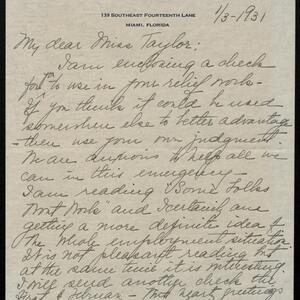 139 SOUTHEAST FOURTEENTH LANE
MIAMI, FLORIDA
1/3-1931
My dear Miss Taylor:
I am enclosing a check
for to use in your relief work-
If you think it could be used
somewhere else to better advantage
-then use your own judgment.
We are anxious to help all we
can in this emergency-
I am reading "Some Folks
Won't Work" and I certainly am
getting a more definite idea of
the whole employment situation
It is not pleasant reading but
at the same time it is interesting.
I will send another check the
first of February - Most hearty greetings